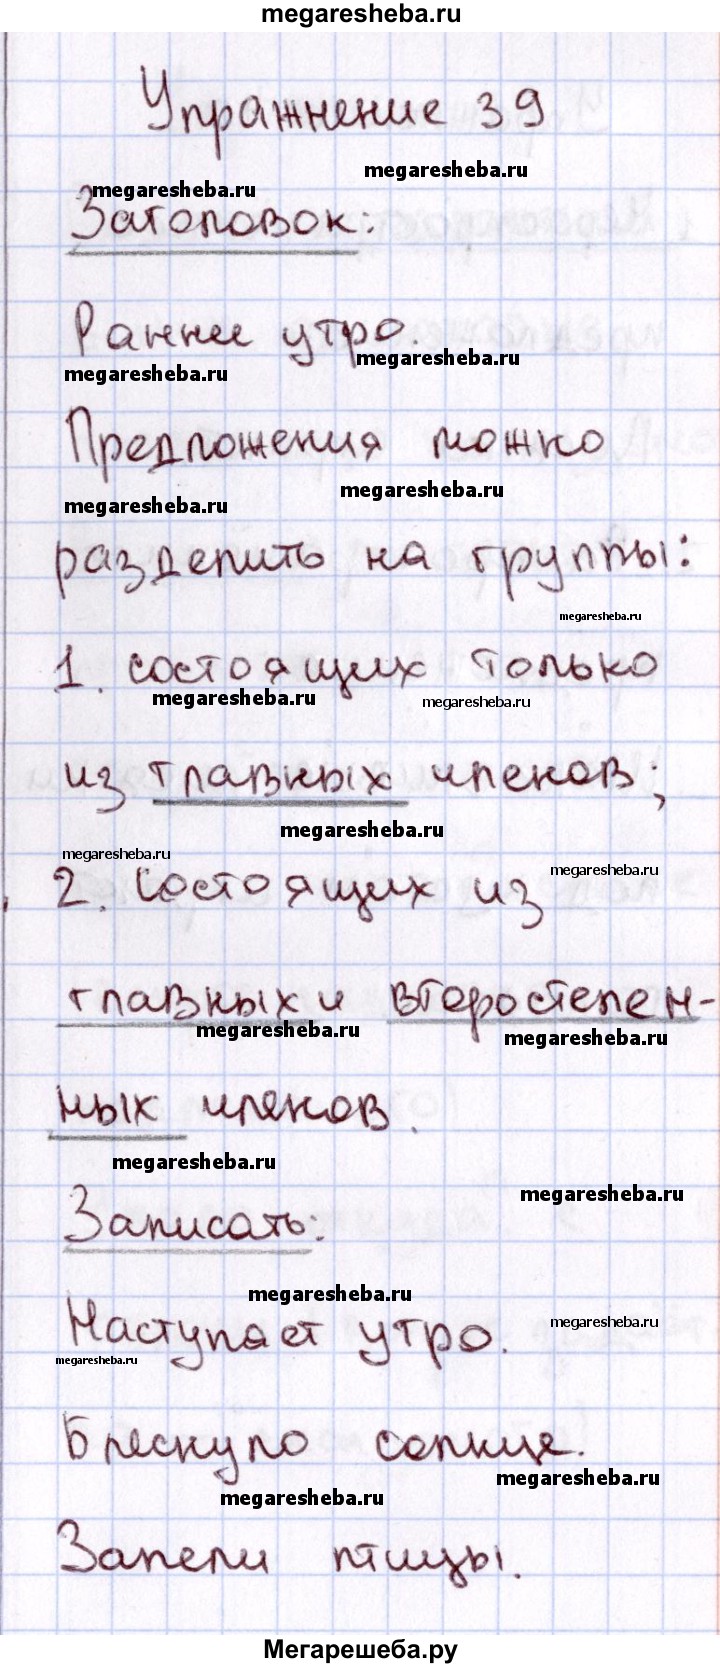 megaresheba.ru
Упражнение 39
megaresheba.ru
megaresheba.ru
Заголовок:
Раннее утро.
megaresheba.ru
megaresheba.ru
Предложения можно
megaresheba.ru
megaresheba.ru
разделить на группы:
megaresheba.ru
1. состоящих только
megaresheba.ru
megaresheba.ru
из главных членов;
megaresheba.ru
megaresheba.ru
megaresheba.ru
2. состоящих из
главных и второстепен-
megaresheba.ru
megaresheba.ru
ных членов.
megaresheba.ru
megaresheba.ru
Записать:
megaresheba.ru
Наступает утро.
megaresheba.ru
megaresheba.ru
Блеснуло солнце.
megaresheba.ru
megaresheba.ru
Запели птицы.
Мегарешеба.ру